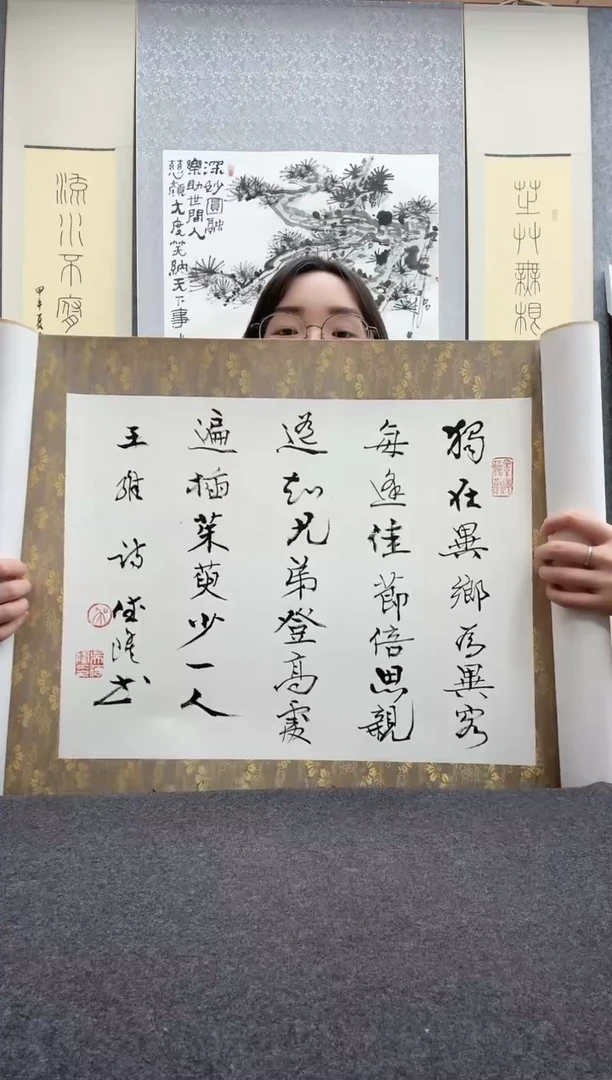 獨在異鄉為異客
每逢佳節倍思親
遥知兄弟登高處
遍插茱萸少一人
王維詩 德隆書
深妙圓融
樂助世間人
慈顏大度笑納天下事
芷艸無根
流水不腐
甲午夏